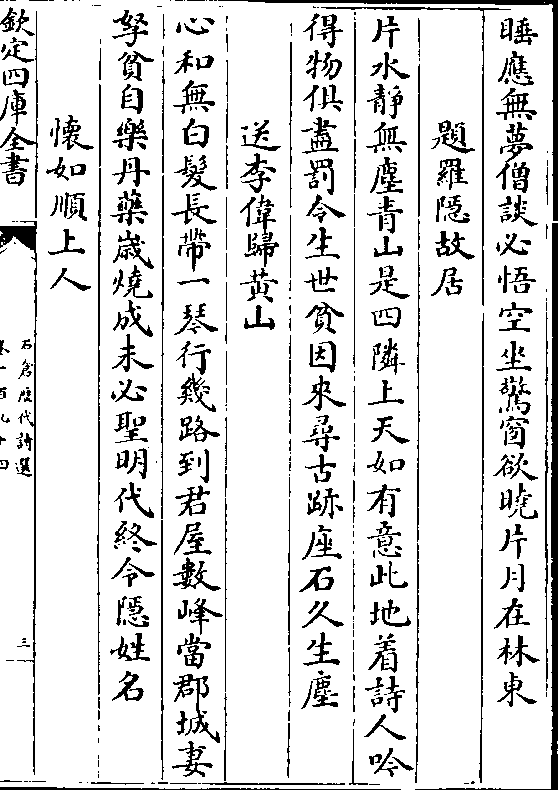 睡應無夢僧談必悟空坐驚窗欲曉片月在林東
題羅隱故居
片水靜無塵青山是四隣上天如有意此地着詩人吟
得物俱盡罰令生世貧因來尋古跡座石久生塵
送李偉歸黃山
心和無白髮長帶一琴行幾路到君屋數峰當郡城妻
孥貧自樂丹藥歲燒成未必聖明代終令隱姓名
懷如順上人
欽定四庫全書
石倉歷代詩選
卷一百九十四
三